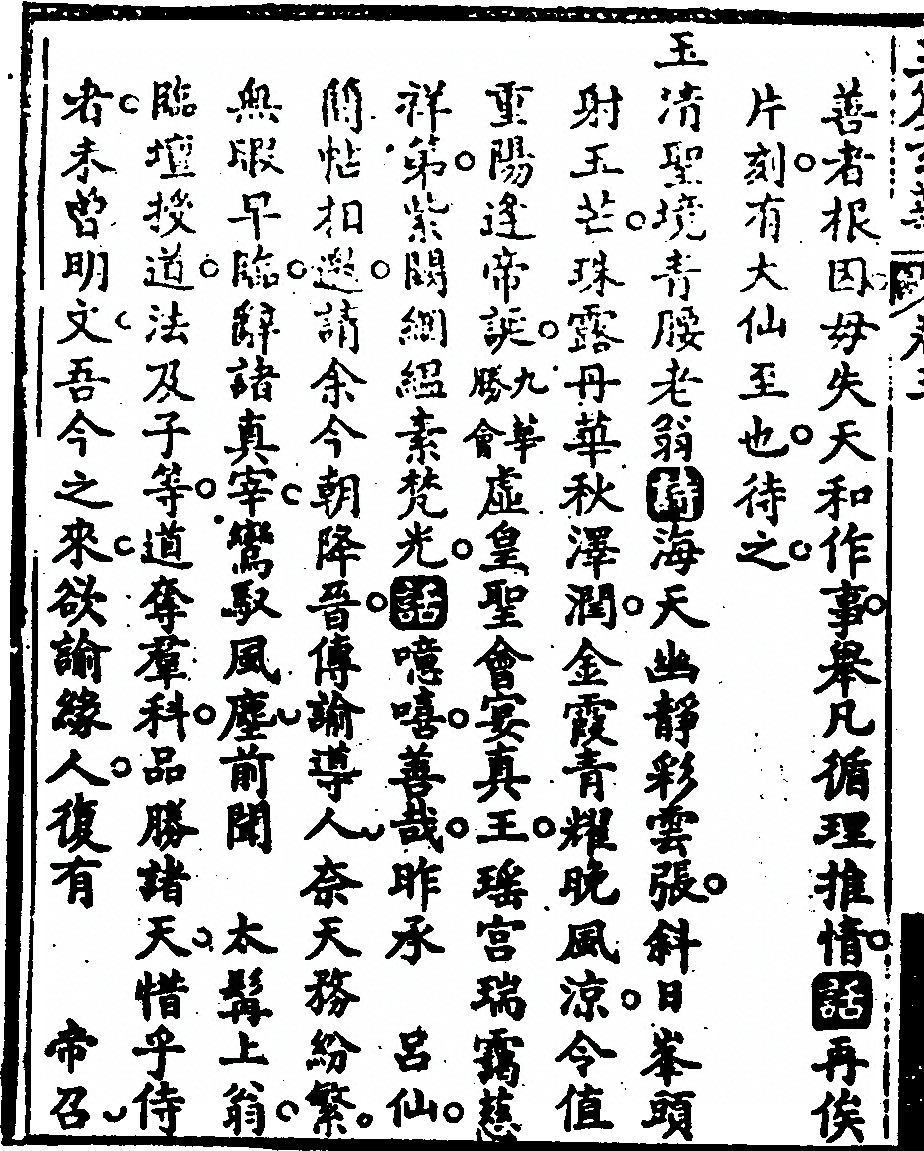 善者根因毋失天和作事舉凡循理推情話再俟
片刻有大仙至也待之
玉清聖境青腰老翁詩海天幽靜彩雲張斜日峯頭
射玉芒珠露丹華秋澤潤金霞青耀晚風涼令值
重陽逢帝誕九華勝會虛皇聖會宴真王瑤宮瑞靄慈
祥第紫闕絪縕素梵光話噫嘻善哉昨承 呂仙
簡帖扣邀請余今朝降晉傳諭導人奈天務紛繁
無暇早臨辭諸真宰鸞馭風塵前聞 太髯上翁
臨壇授道法及子等道奪羣科品勝諸天惜乎侍
者未曾明文吾今之來欲諭緣人復有 帝召